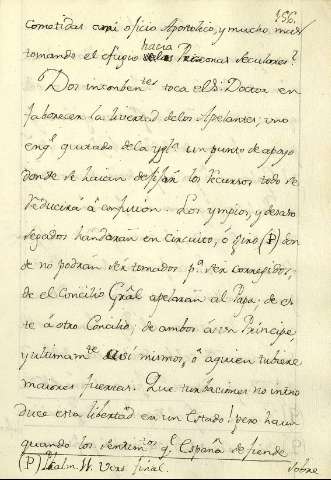 156.
cometidas a mi oficio Apostolico, y mucho mas
tomando el efugio hacia Personas seculares?
Dos inconben.tes toca el S.r Doctor en
faborecer la livertad de los Apelantes; uno
eng.e quitado de la Ygl.a un punto de apoyo
donde se havian de fijar los recursos todo se
reducirá á confusion. Los ympios, y desaso
segados handarán en circuito, ó giro (P) don
de no podrán ser tomados p.a ser corregidos;
de el Concilio Grâl apelarán al Papa; de es
te á otro Concilio; de ambos á un Principe,
y ultimam.te así mismos, ó a quien tubiere
maiores fuerzas. Que turbaciones no intro
duce esta libertad en un Estado! pero haun
quando los sentim.tos q.e España defiende
(P) Psalm. 11. Vers. final.
sobre